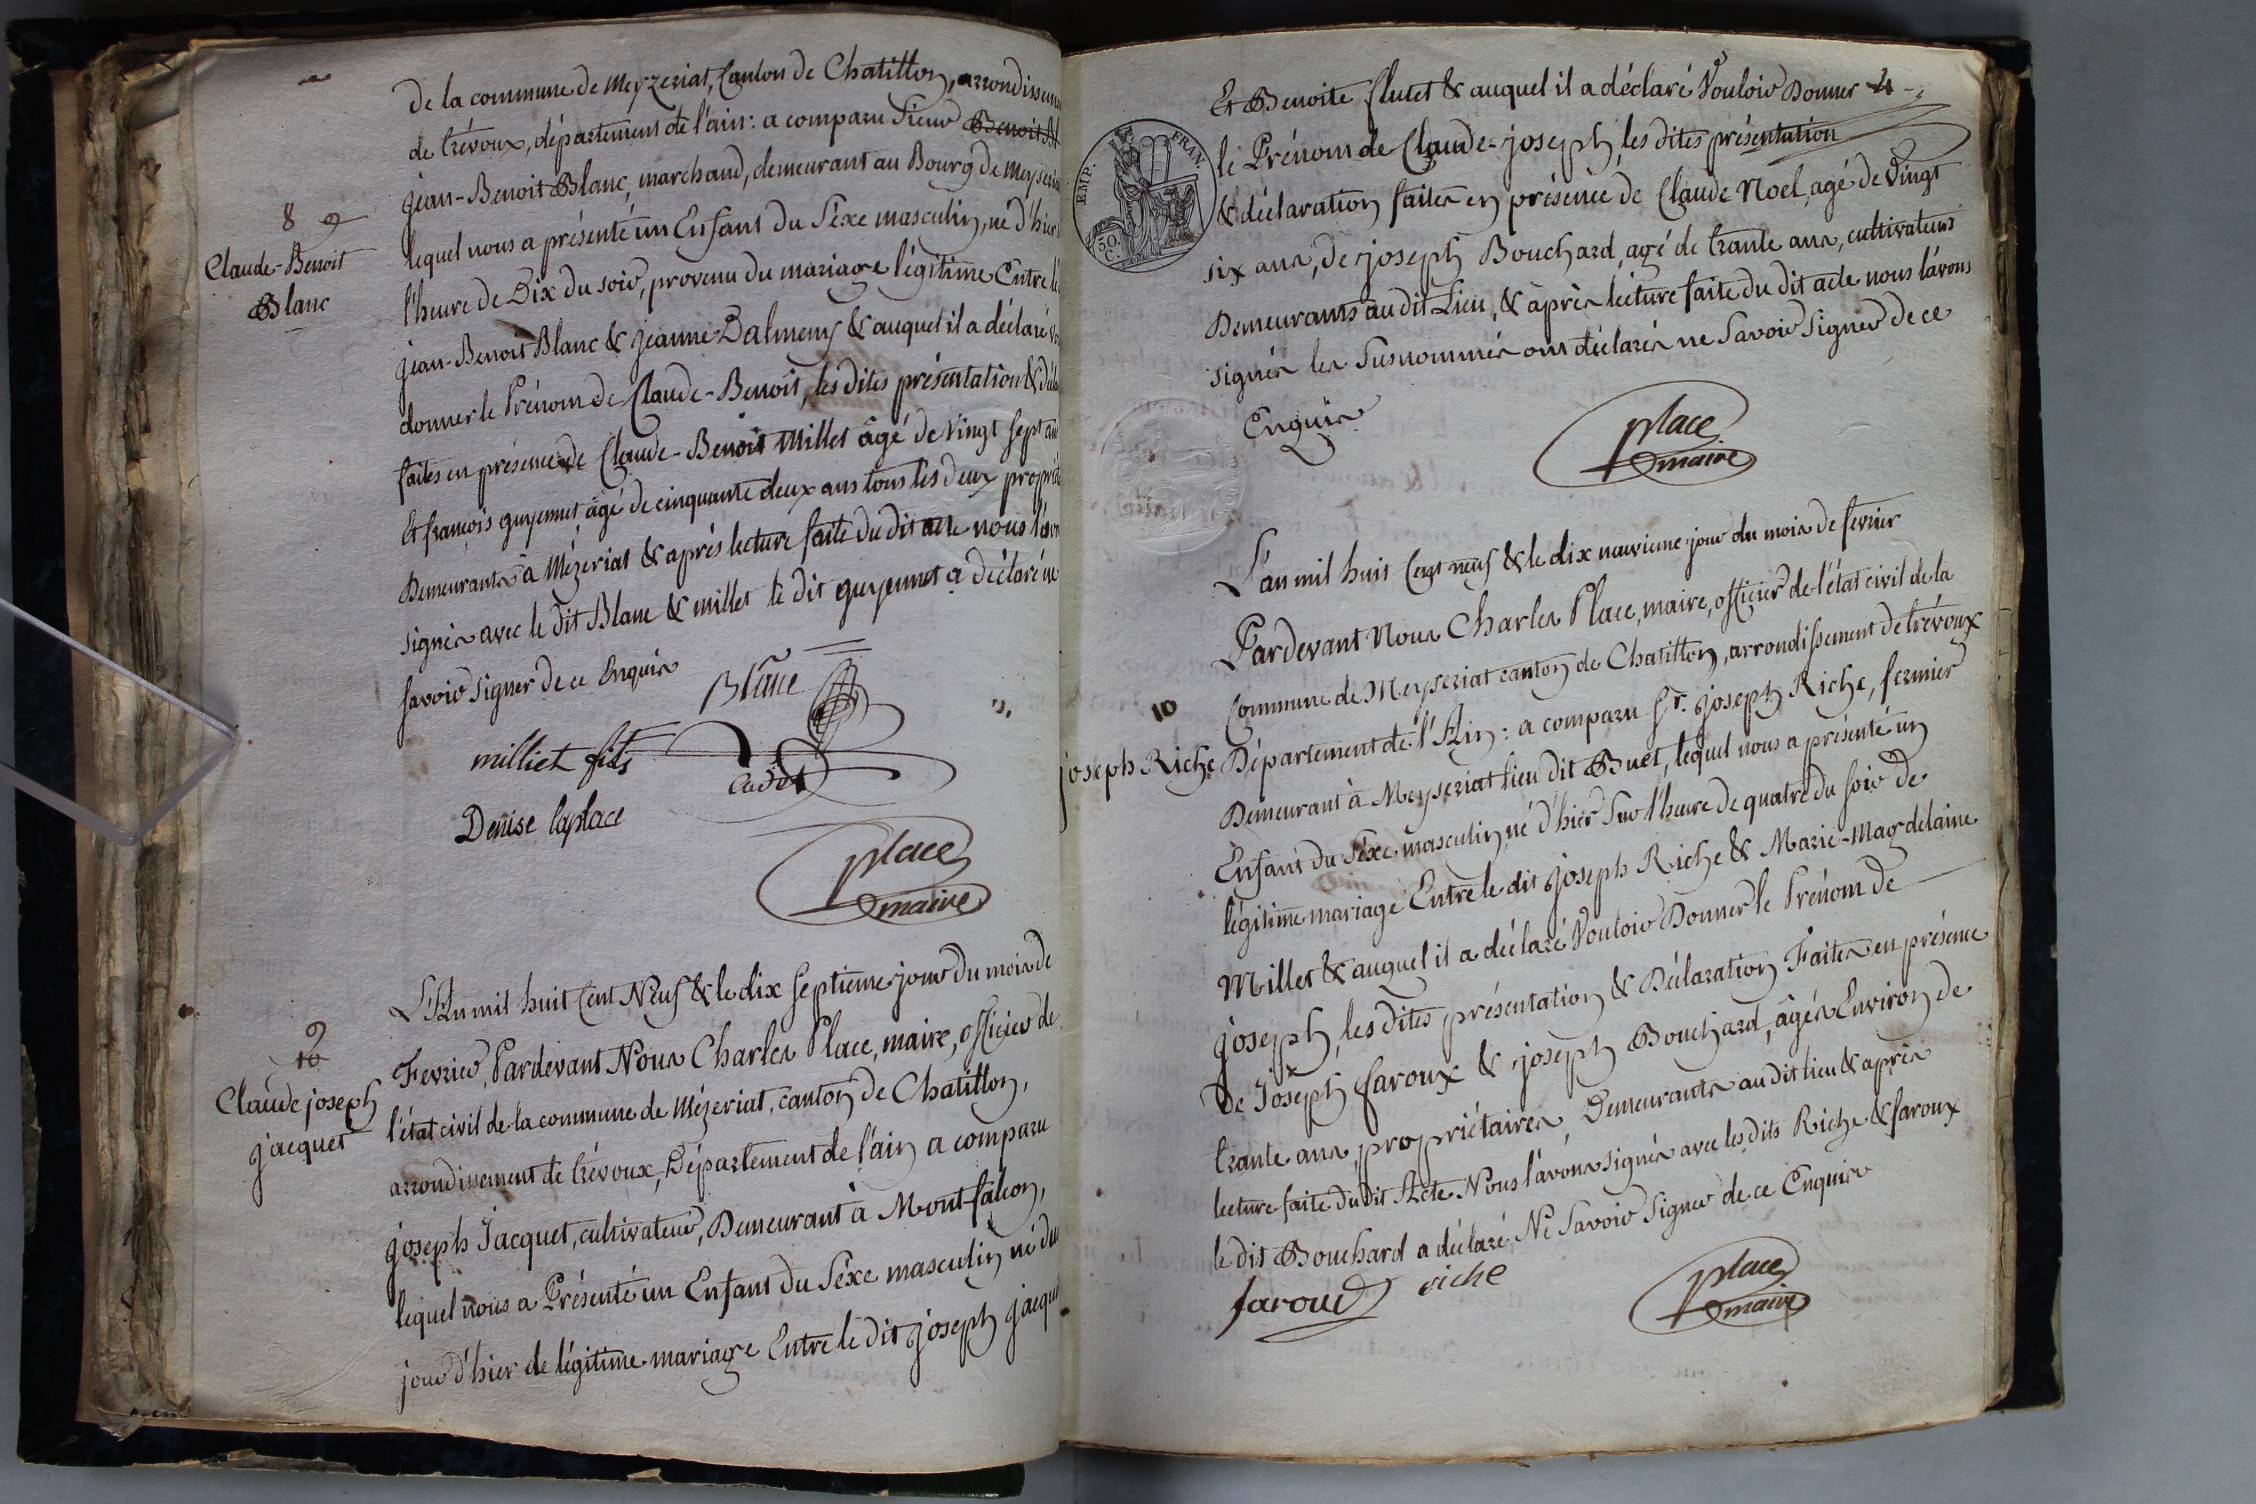 de la commune de Meyzeriat, Canton de Chatillon, arrondissem
de trévoux, département de l'ain : a comparu Sieur Benoit Bl
jean-Benoit Blanc, marchand, demeurant au Bourg de Meyseria
8 9
Claude-Benoit
Blanc
lequel nous a présenté un Enfant du Séxe masculin, né d'hier
l'heure de Dix du soir, provenu du mariage légitime Entre le
jean-Benoit Blanc & jeanne Dalmens & auquel il a déclaré v
donner le Prénom de Claude-Benoit, les dites présentation & décla
faites en présence de Claude-Benoit Millet âgé de vingt sept an
Et françois guyennet âgé de cinquante deux ans tous les deux proprié
Demeurants à Mézeriat & après lecture faite du dit acte nous l'avon
signés avec le dit Blanc & millet le dit guyennet a déclaré ne
savoir signer de ce Enquis
Blanc
milliet fils
cadet
Denise laplace
place
maire
L'An mil huit Cent Neuf & le dix septieme jour du mois de
9
10
Claude joseph
jacquet
Fevrier, Pardevant Nous Charles Place, maire, officier de
l'état civil de la commune de Mézeriat, canton de Chatillon,
arrondissement de trévoux, Département de l'ain a comparu
joseph Jacquet, cultivateur, Demeurant à Montfalcon,
lequel nous a Présenté un Enfant du Séxe masculin né du
jour d'hier de légitime mariage Entre le dit joseph jacquet
Et Benoite flutet & auquel il a déclaré Vouloir Donner 4
EMP. FRAN.
50. C.
le Prénom de Claude-joseph, les dites présentation
& déclaration faites en présence de Claude Noel, agé de vingt
six ans, de joseph Bouchard, agé de trante ans, cultivateurs
Demeurants au dit Lieu, & après lecture faite du dit acte nous l'avons
signés les Susnommés ont déclarés ne Savoir Signer de ce
Enquis
place
maire
L'an mil huit Cent neuf & le dix neuvieme jour du mois de fevrier
Pardevant Nous Charles Place, maire, officier de l'état civil de la
Commune de Meyseriat canton de Chatillon, arrondissement de trévoux
10
joseph Riche
Département de l'Ain : a comparu Sr. joseph Riche, fermier
Demeurant à Meyseriat lieu dit Buet, lequel nous a présenté un
Enfant du Séxe masculin, né d'hier Sur l'heure de quatre du soir de
légitime mariage Entre le dit joseph Riche & Marie-Magdelaine
Millet & auquel il a déclaré Vouloir Donner le Prénom de
joseph, les dites présentation & Déclaration Faites en présence
De Joseph faroux & joseph Bouchard, âgés Environ de
trante ans, propriétaires, Demeurants au dit lieu & après
lecture faite du dit Acte Nous l'avons signés avec les dits Riche & faroux
le dit Bouchard a déclaré Ne Savoir Signer de ce Enquis
faroud riche
place
maire